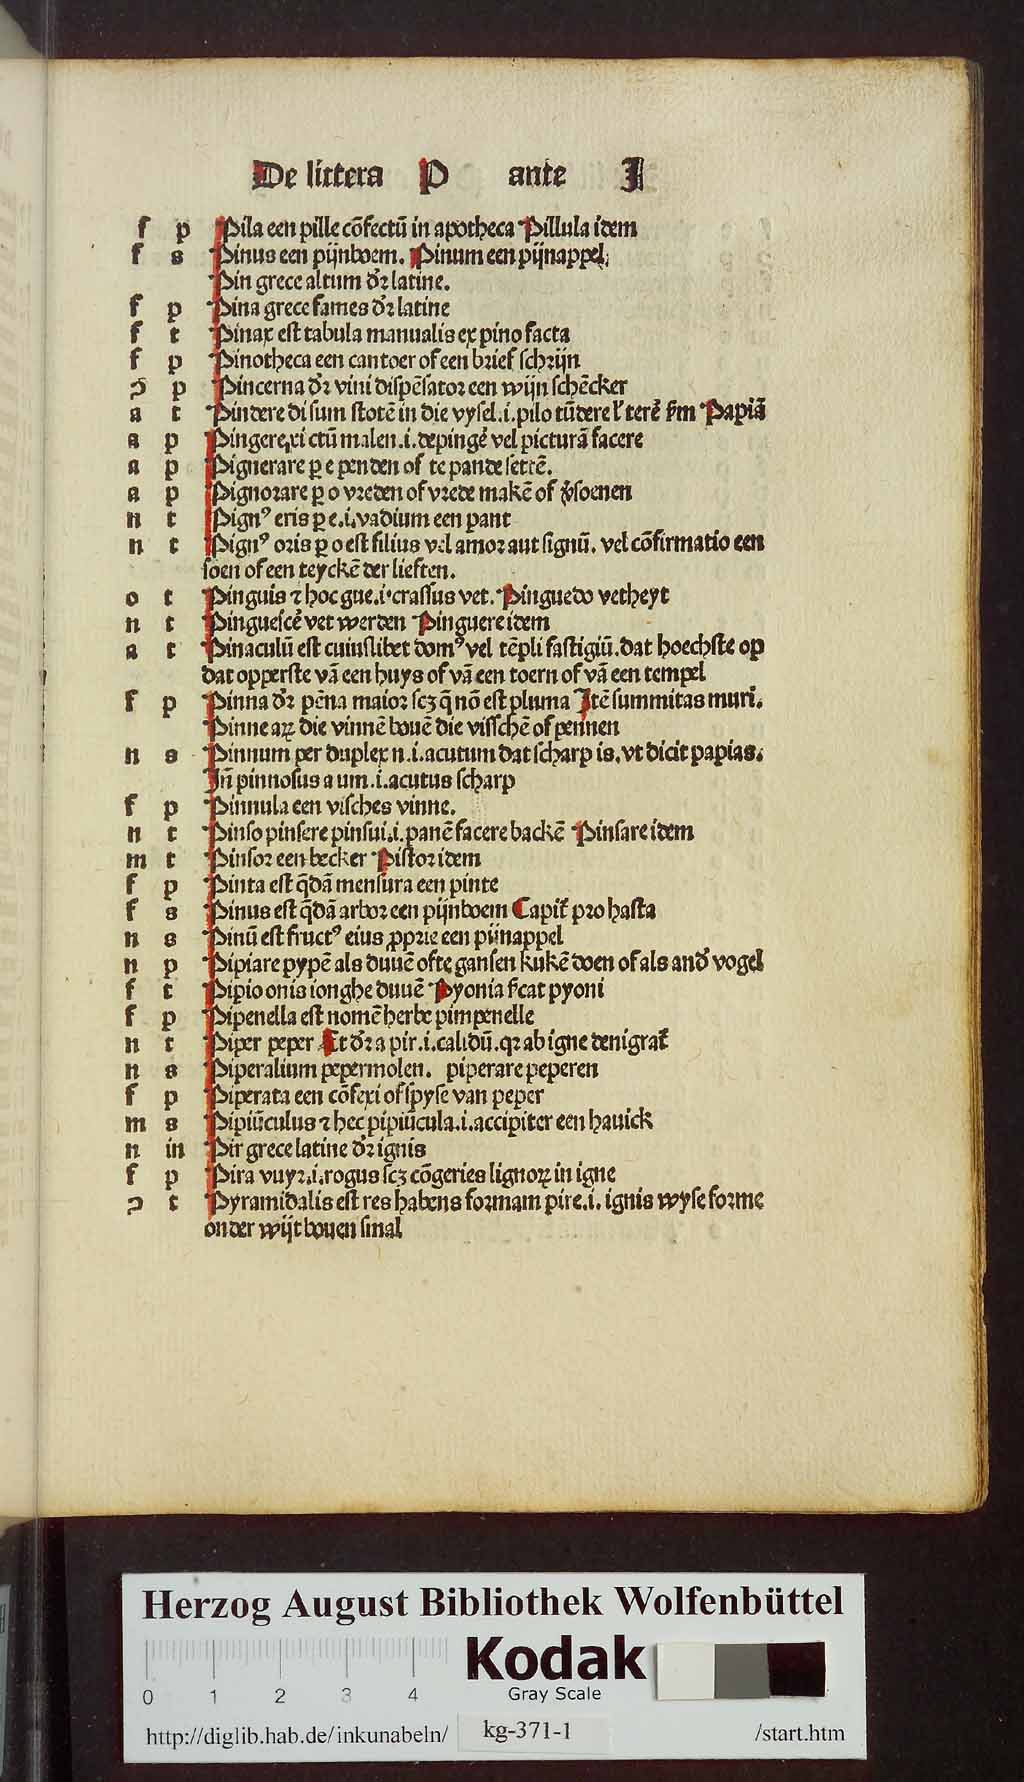 De littera P ante I
f p Pila een pille cōfectū in apotheca Pillula idem
f s Pinus een pijnboem. Pinum een pijnappel.
Pin grece altum dr̄ latine.
f p Pina grece fames dr̄ latine
f t Pinax est tabula manualis ex pino facta
f p Pinotheca een cantoer of een brief schrijn
ꝯ p Pincerna dr̄ vini dispēsator een wijn schēcker
a t Pindere di sum stotē in die vysel .i. pilo tūdere ł terē ẜm Papiā
a p Pingere xi ctū malen .i. depingē vel picturā facere
a p Pignerare p e penden of te pande settē.
a p Pignorare p o vreden of vrede makē of v̄soenen
n t Pignꝰ eris p e .i. vadium een pant
n t Pignꝰ oris p o est filius vel amor aut signū. vel cōfirmatio een
soen of een teyckē der lieften.
o t Pinguis ⁊ hoc gue .i. crassus vet. Pinguedo vetheyt
n t Pinguescē vet werden Pinguere idem
a t Pinaculū est cuiuslibet domꝰ vel tēpli fastigiū. dat hoechste op
dat opperste vā een huys of vā een toern of vā een tempel
f p Pinna dr̄ pēna maior scꝫ q̄ nō est pluma Itē summitas muri.
Pinne aꝝ die vinnē bouē die visschē of pennen
n s Pinnum per duplex n .i. acutum dat scharp is. vt dicit papias.
Iñ pinnosus a um .i. acutus scharp
f p Pinnula een visches vinne.
n t Pinso pinsere pinsui .i. panē facere backē Pinsare idem
m t Pinsor een becker Pistor idem
f p Pinta est q̄dā mensura een pinte
f s Pinus est q̄dā arbor een pijnboem Capit᷑ pro hasta
n s Pinū est fructꝰ eius ꝓprie een pijnappel
n p Pipiare pypē als duuē ofte gansen kukē doen of als and᷑ vogel
f t Pipio onis ionghe duuē Pyonia ẜcat pyoni
f p Pipenella est nomē herbe pimpenelle
n t Piper peper Et dr̄ a pir .i. calidū. qꝛ ab igne denigrat᷑
n s Piperalium pepermolen. piperare peperen
f p Piperata een cōfexi of spyse van peper
m s Pipiūculus ⁊ hec pipiūcula .i. accipiter een hauick
n in Pir grece latine dr̄ ignis
f p Pira vuyr .i. rogus scꝫ cōgeries lignoꝝ in igne
ꝯ t Pyramidalis est res habens formam pire .i. ignis wyse forme
onder wijt bouen smal
Herzog August Bibliothek Wolfenbüttel
Kodak
Gray Scale
0 1 2 3 4
http://diglib.hab.de/inkunabeln/ kg-371-1 /start.htm